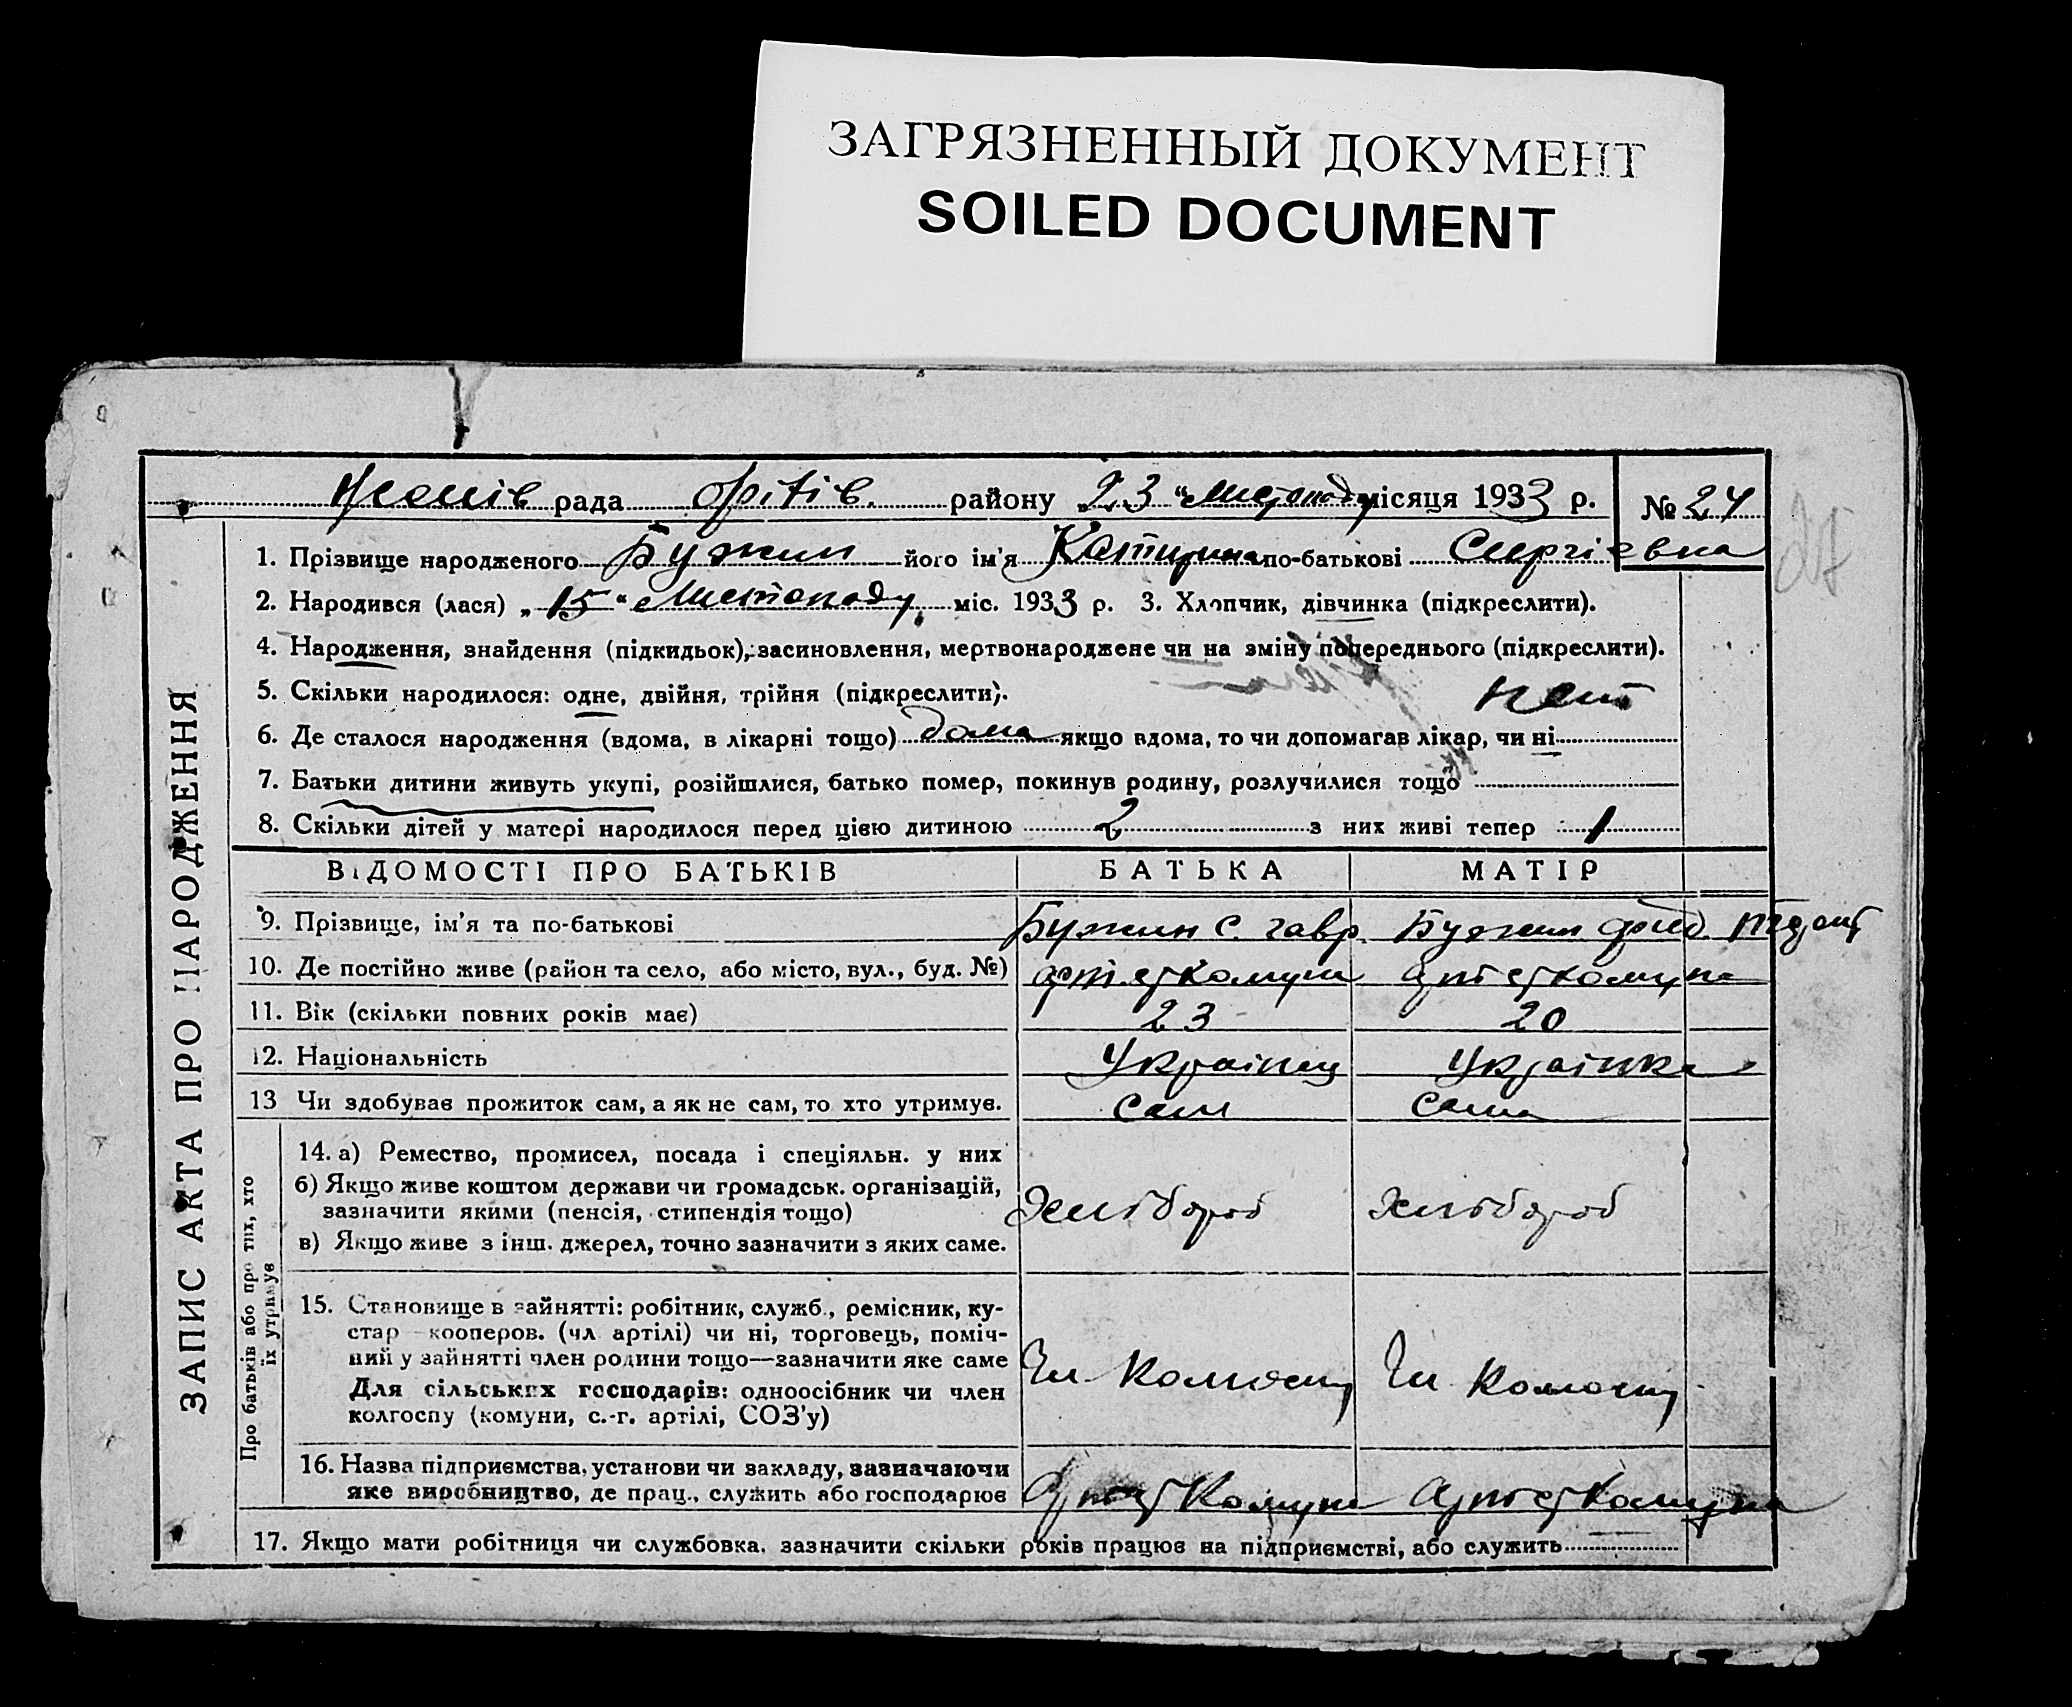 ЗАГРЯЗНЕННЫЙ ДОКУМЕНТ
SOILED DOCUMENT
рада району „23“ Листопаду місяця 1933 р. № 24
1. Прізвище народженого Бужин його ім'я Катирина по-батькові Сиргієвна
2. Народився (лася) „15“ Листопаду міс. 1933 р. 3. Хлопчик, дівчинка (підкреслити).
4. Народження, знайдення (підкидьок), засиновлення, мертвонароджене чи на зміну попереднього (підкреслити).
5. Скільки народилося: одне, двійня, трійня (підкреслити).
нет
6. Де сталося народження (вдома, в лікарні тощо) дома якщо вдома, то чи допомагав лікар, чи ні
7. Батьки дитини живуть укупі, розійшлися, батько помер, покинув родину, розлучилися тощо
8. Скільки дітей у матері народилося перед цією дитиною 2 з них живі тепер 1
ВІДОМОСТІ ПРО БАТЬКІВ БАТЬКА МАТІР
9. Прізвище, ім'я та по-батькові Бужин С. гавр. Бужин
10. Де постійно живе (район та село, або місто, вул., буд. №)
11. Вік (скільки повних років має) 23 20
12. Національність Українец Українка
13 Чи здобував прожиток сам, а як не сам, то хто утримув. Сам Сама
14. а) Ремество, промисел, посада і спеціяльн. у них
б) Якщо живе коштом держави чи громадськ. організацій,
зазначити якими (пенсія, стипендія тощо) Хлібороб Хлібороб
в) Якщо живе з інш. джерел, точно зазначити з яких саме.
15. Становище в зайнятті: робітник, служб., ремісник, ку-
стар - кооперов. (чл артілі) чи ні, торговець, поміч-
ний у зайнятті член родини тощо—зазначити яке саме
Для сільських господарів: одноосібник чи член
колгоспу (комуни, с.-г. артілі, СОЗ'у)
Чл Чл
16. Назва підприємства, установи чи закладу, зазначаючи
яке виробництво, де прац., служить або господарює
17. Якщо мати робітниця чи службовка, зазначити скільки років працює на підприємстві, або служить
ЗАПИС АКТА ПРО НАРОДЖЕННЯ
Про батьків або про тих, хто
їх утримує